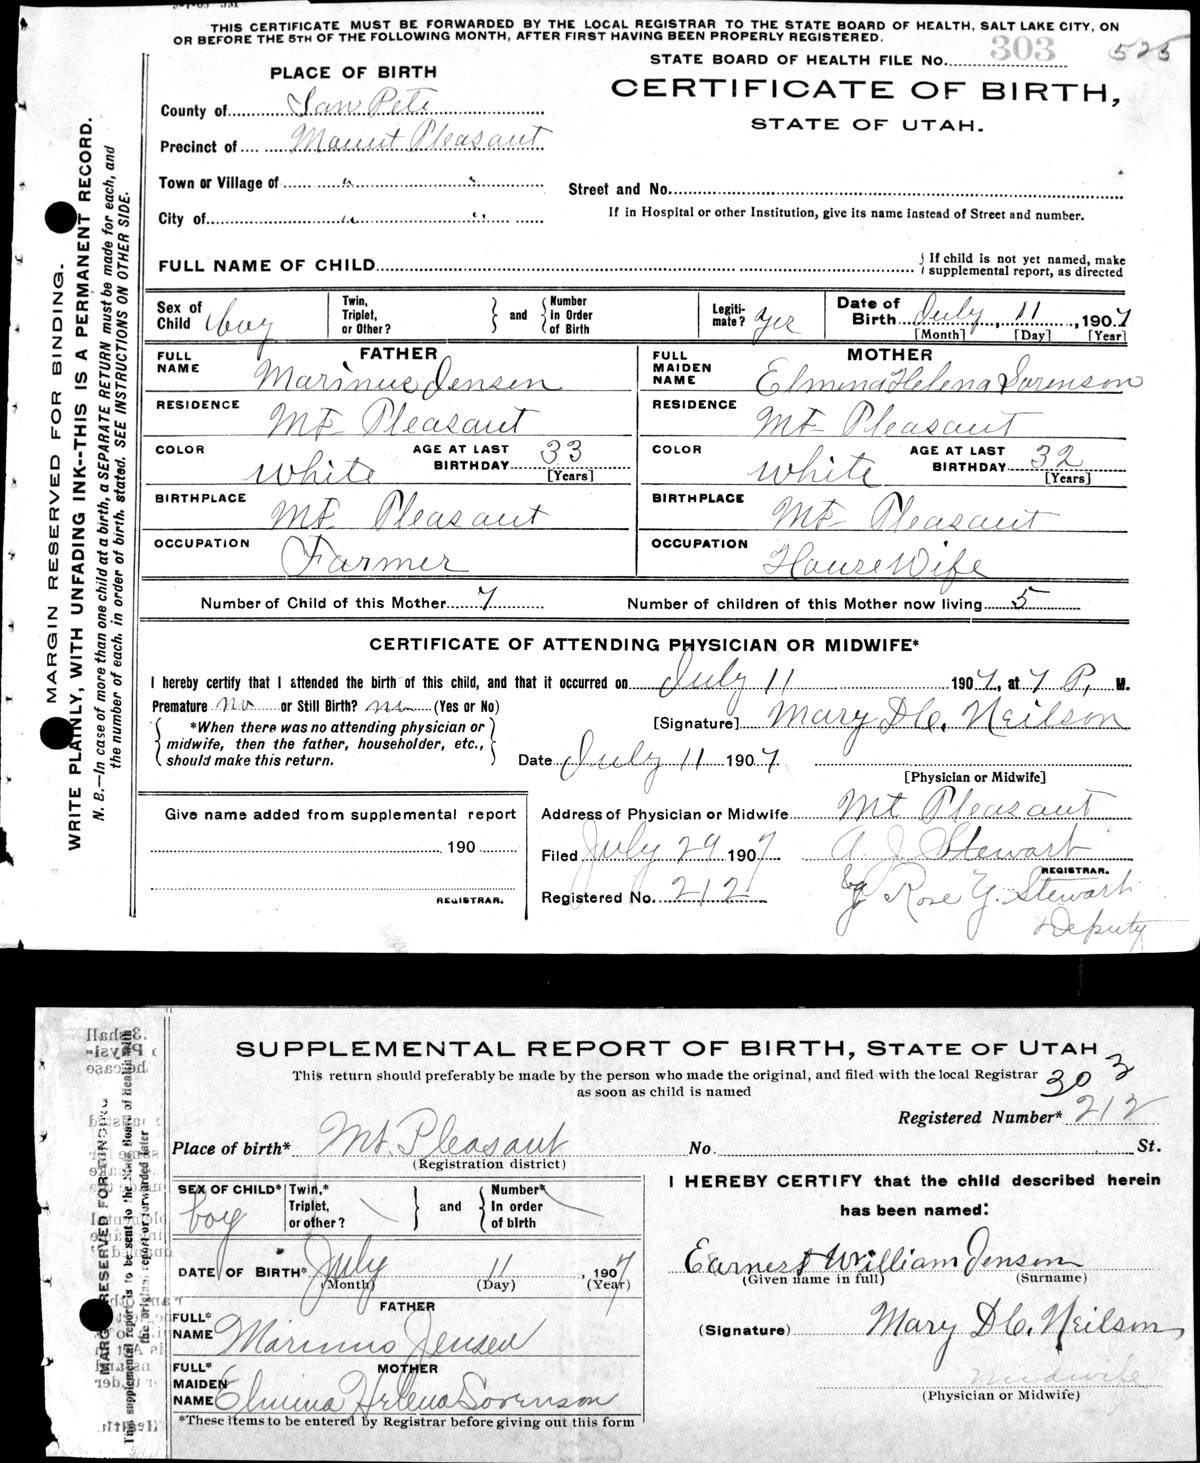 THIS CERTIFICATE MUST BE FORWARDED BY THE LOCAL REGISTRAR TO THE STATE BOARD OF HEALTH, SALT LAKE CITY, ON
OR BEFORE THE 5TH OF THE FOLLOWING MONTH, AFTER FIRST HAVING BEEN PROPERLY REGISTERED.
STATE BOARD OF HEALTH FILE No. 303 525
PLACE OF BIRTH
CERTIFICATE OF BIRTH,
STATE OF UTAH.
County of San Pete
Precinct of Mount Pleasant
Town or Village of " "
City of " "
Street and No.
If in Hospital or other Institution, give its name instead of Street and number.
FULL NAME OF CHILD
If child is not yet named, make
supplemental report, as directed
Sex of Child boy
Twin, Triplet, or Other? and Number in Order of Birth
Legitimate? Yes
Date of Birth July, 11, 1907
[Month] [Day] [Year]
FATHER
FULL NAME Marinus Jensen
RESIDENCE Mt Pleasant
COLOR white AGE AT LAST BIRTHDAY 33 [Years]
BIRTHPLACE Mt Pleasant
OCCUPATION Farmer
MOTHER
FULL MAIDEN NAME Elmina Helena Sorenson
RESIDENCE Mt Pleasant
COLOR white AGE AT LAST BIRTHDAY 32 [Years]
BIRTHPLACE Mt Pleasant
OCCUPATION House Wife
Number of Child of this Mother 7 Number of children of this Mother now living 5
CERTIFICATE OF ATTENDING PHYSICIAN OR MIDWIFE*
I hereby certify that I attended the birth of this child, and that it occurred on July 11 1907, at 7 P. M.
Premature no or Still Birth? no (Yes or No)
*When there was no attending physician or
midwife, then the father, householder, etc.,
should make this return.
[Signature] Mary DC. Neilson
Date July 11 1907.
[Physician or Midwife]
Give name added from supplemental report
190
REGISTRAR.
Address of Physician or Midwife Mt Pleasant
Filed July 29 1907 A. J. Stewart
REGISTRAR.
Registered No. 212 by Rose Y. Stewart
Deputy
MARGIN RESERVED FOR BINDING.
WRITE PLAINLY, WITH UNFADING INK--THIS IS A PERMANENT RECORD.
N. B.—In case of more than one child at a birth, a SEPARATE RETURN must be made for each, and
the number of each, in order of birth, stated. SEE INSTRUCTIONS ON OTHER SIDE.
SUPPLEMENTAL REPORT OF BIRTH, STATE OF UTAH
This return should preferably be made by the person who made the original, and filed with the local Registrar
as soon as child is named
303
Registered Number* 212
Place of birth* Mt. Pleasant No. St.
(Registration district)
SEX OF CHILD* boy
Twin,* Triplet, or other? and Number* In order of birth
DATE OF BIRTH* July 11, 1907
(Month) (Day) (Year)
FATHER
FULL* NAME Marinus Jensen
MOTHER
FULL* MAIDEN NAME Elmina Helena Sorenson
*These items to be entered by Registrar before giving out this form
I HEREBY CERTIFY that the child described herein
has been named:
Earnest William Jenson
(Given name in full) (Surname)
(Signature) Mary DC. Neilson,
midwife
(Physician or Midwife)